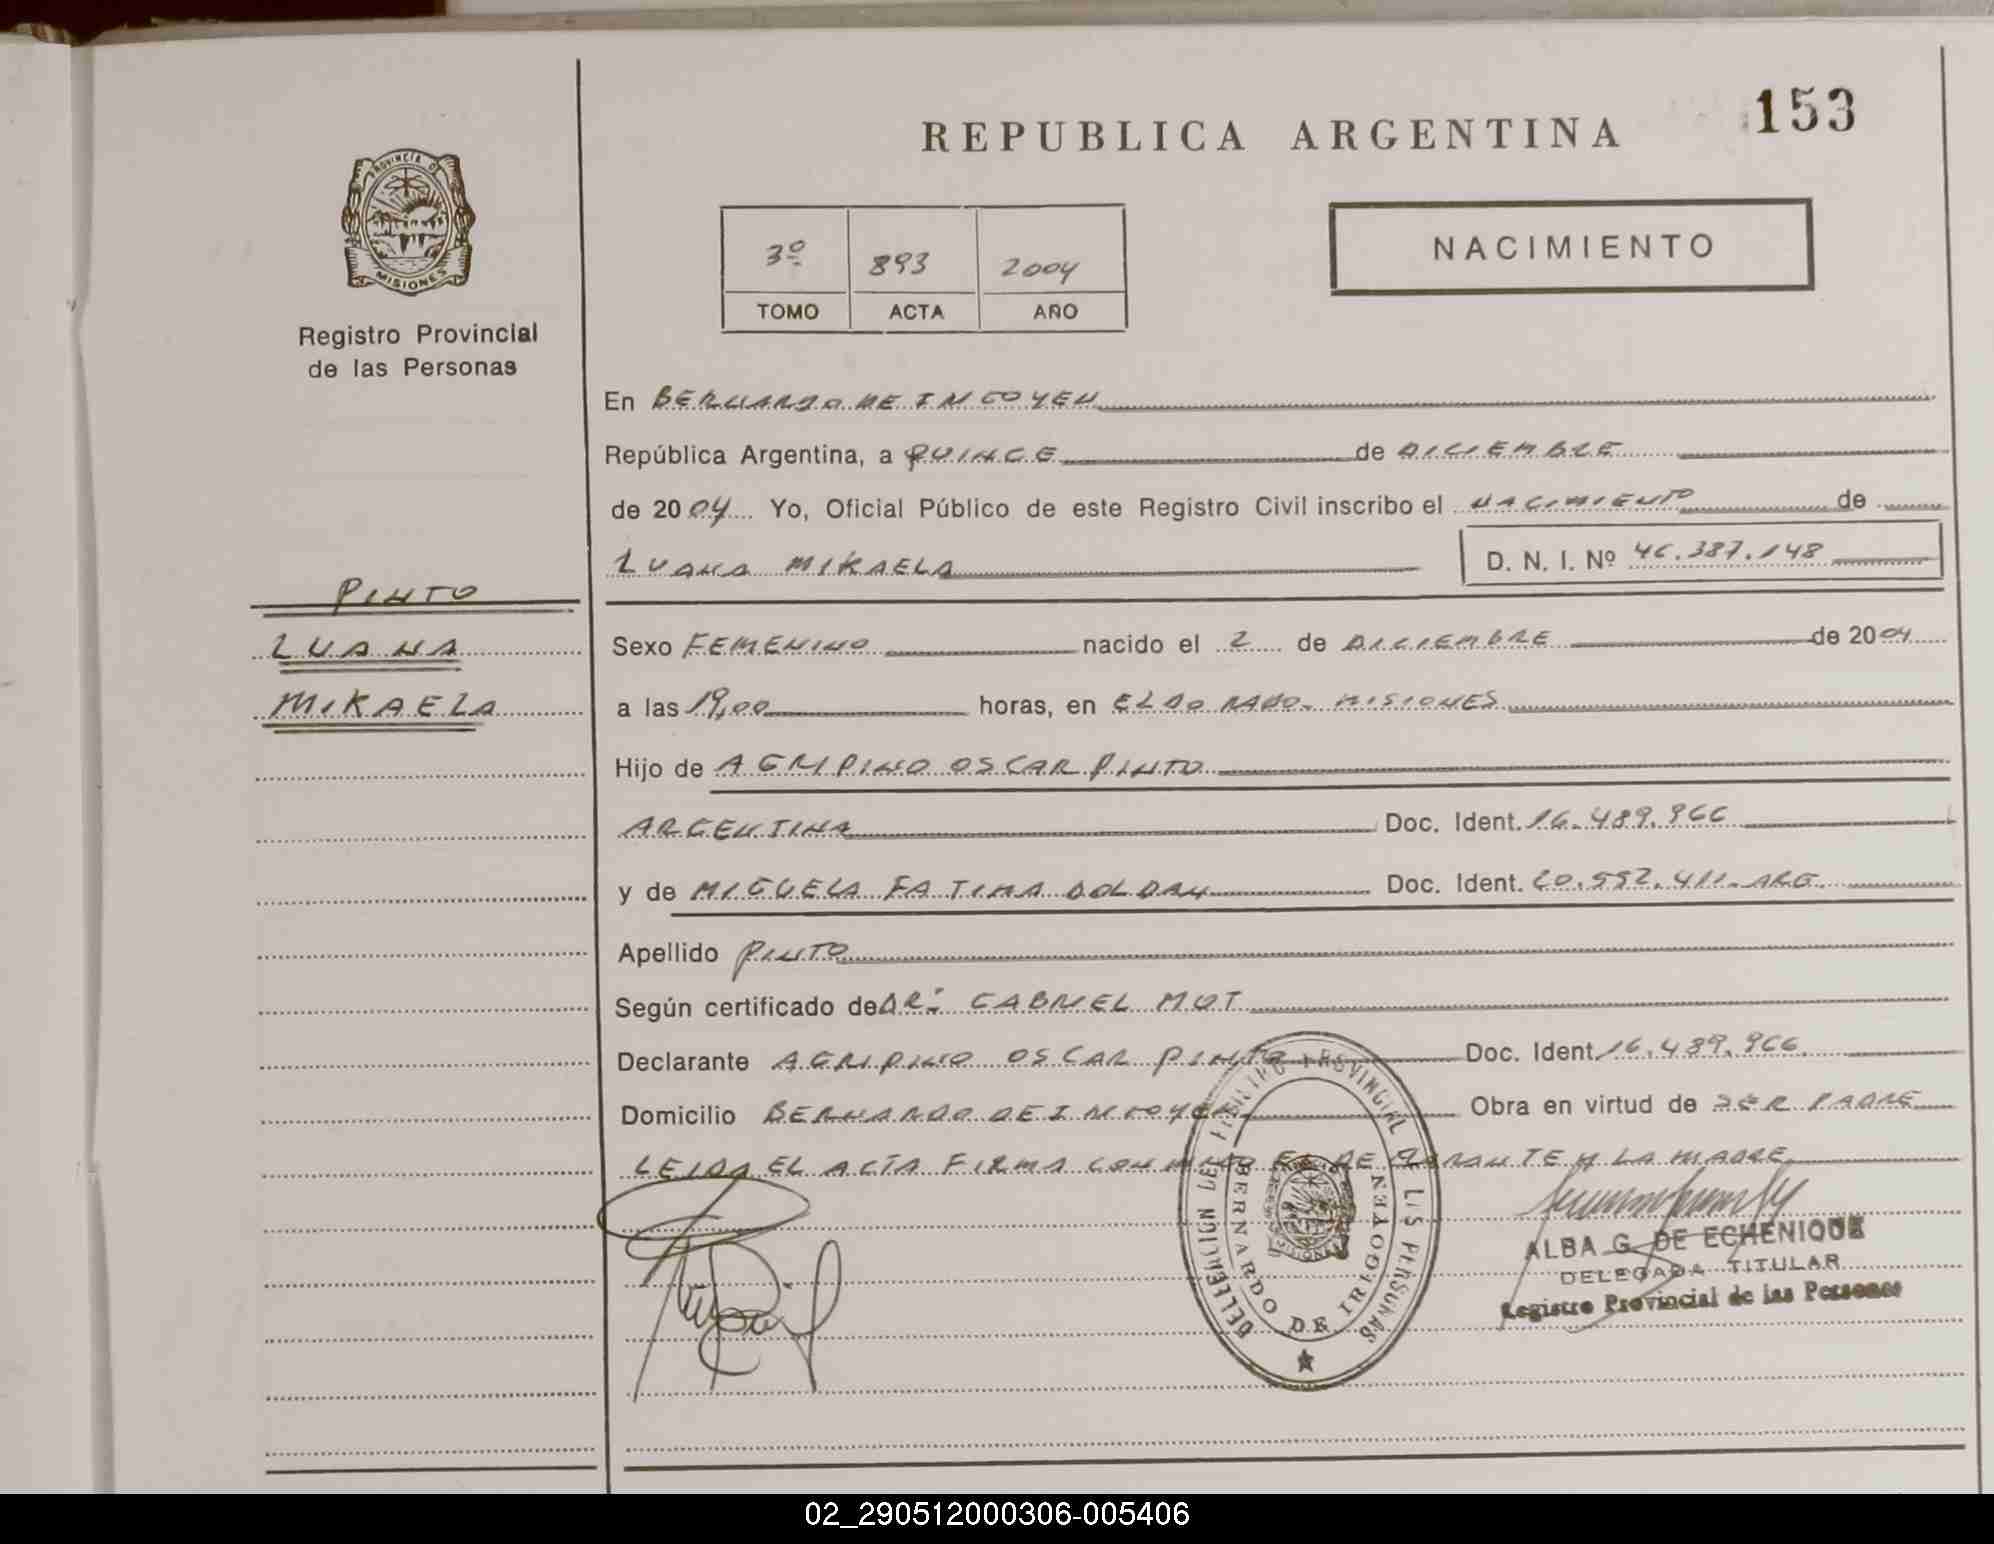 153
REPUBLICA ARGENTINA
PROVINCIA DE
MISIONES
Registro Provincial
de las Personas
NACIMIENTO
3º 893 2004
TOMO ACTA AÑO
En BERNARDO DE IRIGOYEN
República Argentina, a QUINCE de DICIEMBRE
de 2004 Yo, Oficial Público de este Registro Civil inscribo el NACIMIENTO de
LUANA MIKAELA D. N. I. Nº 46.387.148
PINTO
LUANA
MIKAELA
Sexo FEMENINO nacido el 2 de DICIEMBRE de 2004
a las 19,00 horas, en ELDORADO - MISIONES
Hijo de AGRIPINO OSCAR PINTO
ARGENTINA Doc. Ident. 16.489.966
y de MIGUELA FATIMA DOLDAN Doc. Ident. 20.552.411 - ARG.
Apellido PINTO
Según certificado de DR: GABRIEL MOT
Declarante AGRIPINO OSCAR PINTO Doc. Ident 16.489.966
Domicilio BERNARDO DE IRIGOYEN Obra en virtud de SER PADRE
LEIDA EL ACTA FIRMA CONMIGO EL DECLARANTE Y LA MADRE
DELEGACION DEL REGISTRO PROVINCIAL DE LAS PERSONAS
BERNARDO DE IRIGOYEN
MISIONES
ALBA G. DE ECHENIQUE
DELEGADA TITULAR
Registro Provincial de las Personas
02_290512000306-005406